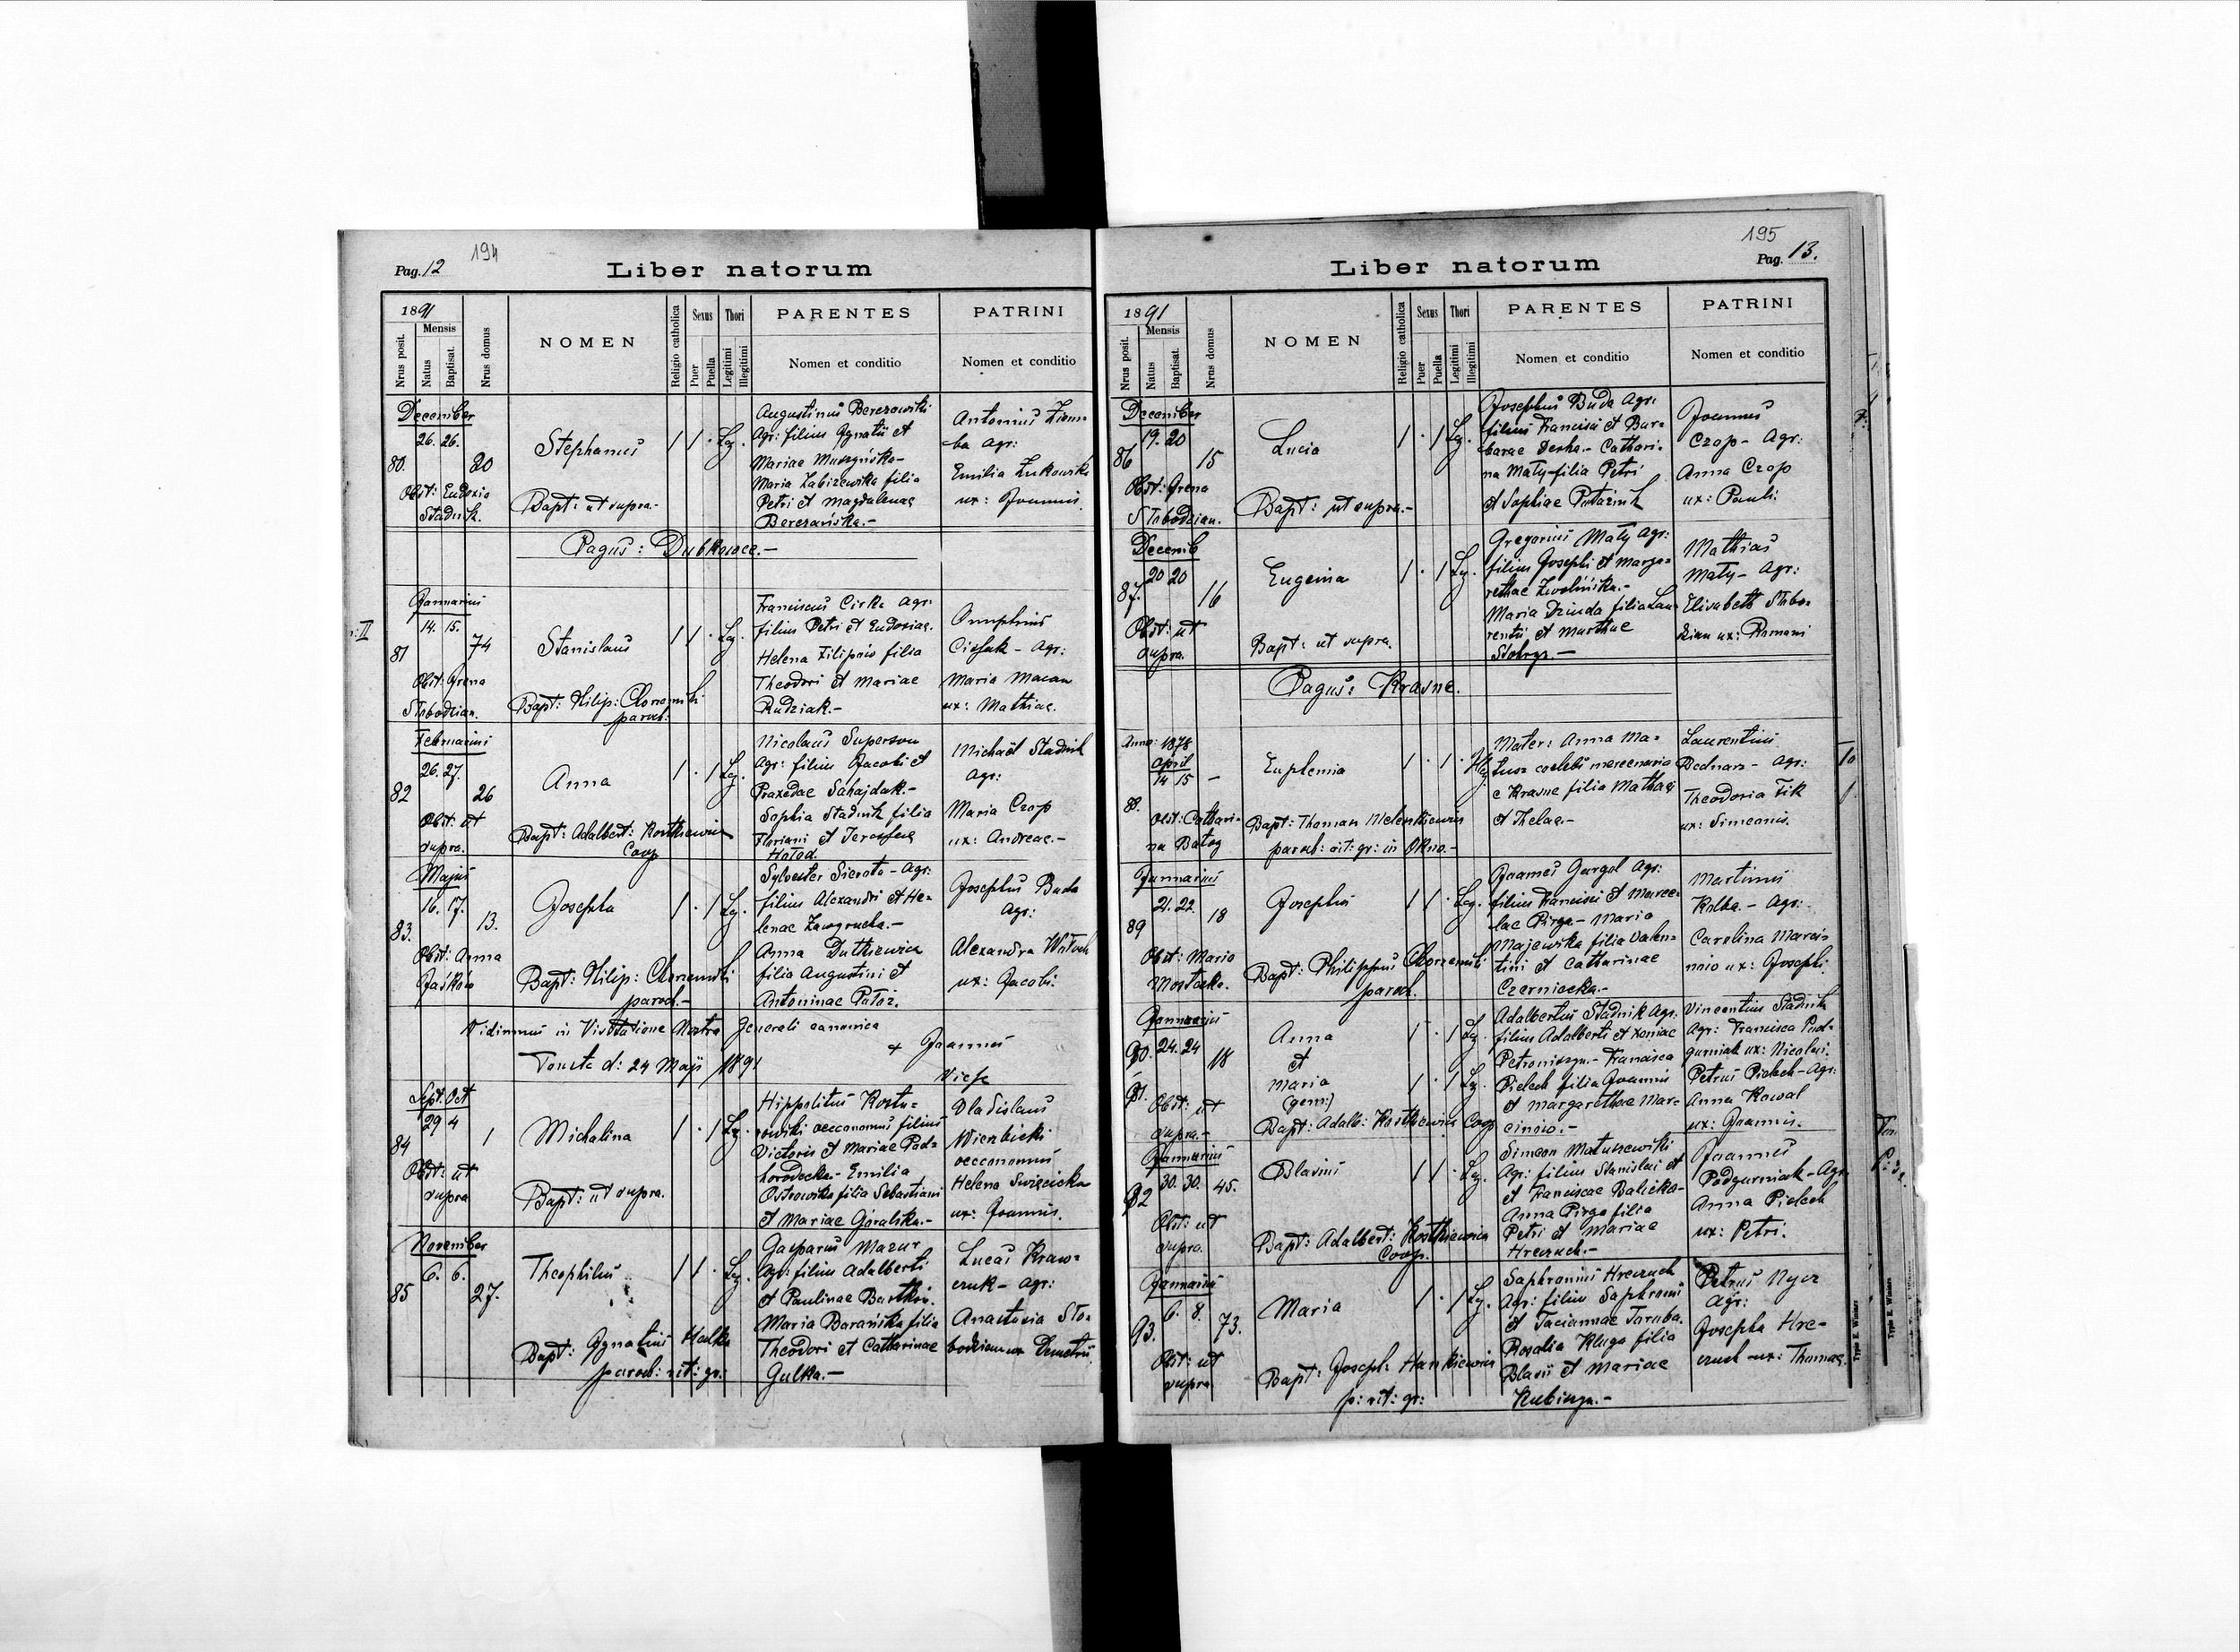 194
Pag. 12
Liber natorum
1891
Mensis
Nrus posit.
Natus
Baptisat.
Nrus domus
NOMEN
Religio catholica
Sexus
Puer
Puella
Thori
Legitimi
Illegitimi
PARENTES
Nomen et conditio
PATRINI
Nomen et conditio
December
26. 26.
80.
20
Obst: Eudoxia
Stadnik.
Stephanus
Bapt: ut supra.-
1 1 · Leg.
Augustinus Berezowski
Agr: filius Ignatii et
Mariae Muszyńska-
Maria Labiszewska filia
Petri et Magdalenae
Berezańska.-
Antonius
ba agr:
Emilia Żukowska
ux: Joannis.
Pagus: Dubkowce.-
Januarius
14. 15.
81
74
Obst: Irena
Słobodzian.
Stanislaus
Bapt: Filip: Chorzemski
paroch:
1 1 · Leg.
Franciscus Ciska Agr:
filius Petri et Eudoxiae.
Helena Filipów filia
Theodori et Mariae
Rudziak.-
Onuphrius
Cieślak - Agr:
Maria Macan
ux: Mathiae.
Februarius
26. 27.
82
26
Obst: ut
supra.
Anna
Bapt: Adalbert: Kostkiewicz
Coop
1 · 1 Leg.
Nicolaus Superson
Agr: filius Jacobi et
Praxedae Sahajdak.-
Sophia Stadnik filia
Floriani et
Hołod.
Michaël Stadnik
Agr:
Maria Czop
ux: Andreae.-
Majus
16. 17.
83.
13.
Obst: Anna
Jaśków
Josepha
Bapt: Filip: Chorzemski
paroch.-
1 · 1 Leg.
Sylvester Sierota - Agr:
filius Alexandri et He-
lenae
Anna Dutkiewicz
filia Augustini et
Antoninae
Josephus Buda
Agr:
Alexandra Wołoch
ux: Jacobi.
Vidimus in Visitatione Nostra Generali canonica
Touste d: 24 Maji 1891
+ Joannes
Sept. Oct
29 4
84
1
Obst: ut
supra
Michalina
Bapt: ut supra.
1 · 1 Leg.
Hippolitus Kostu-
rowski oeconomus filius
Victoris et Mariae Pod-
horodecka- Emilia
Ostrowska filia Sebastiani
et Mariae Góralska.-
Vladislaus
Wierzbicki
oeconomus
Helena Swięcicka
ux: Joannis.
November
6. 6.
85
27.
Theophilus
Bapt: Ignatius Halka
paroch: rit: gr:
1 1 · Leg.
Gasparus Mazur
Agr: filius Adalberti
et Paulinae Bartków.
Maria Barańska filia
Theodori et Catharinae
Gulka.-
Lucas Kraw-
czuk - agr:
Anastasia Sło-
bodzian ux Demetrii
195
Pag. 13.
Liber natorum
1891
Mensis
Nrus posit.
Natus
Baptisat.
Nrus domus
NOMEN
Religio catholica
Sexus
Puer
Puella
Thori
Legitimi
Illegitimi
PARENTES
Nomen et conditio
PATRINI
Nomen et conditio
December
19. 20
86
15
Obst: Irena
Słobodzian.
Lucia
Bapt: ut supra.-
1 · 1 Leg.
Josephus Buda Agr:
filius Francisci et Bar-
barae Derka.- Cathari-
na Mały filia Petri
et Sophiae
Joannes
Czop - Agr:
Anna Czop
ux: Pauli.
Decemb
20 20
87.
16
Obst: ut
supra.
Eugenia
Bapt: ut supra.
1 · 1 Leg.
Gregorius Mały Agr:
filius Josephi et Marga-
rethae Zwolińska.-
Maria Dziuda filia Lau-
rentii et Marthae
Mathias
Mały - Agr:
Elisabeth Słobo-
dzian ux: Romani
Pagus: Krasne.
Anno: 1878
April
14 15 -
88.
Obst: Cathari-
na Batog
Euphemia
Bapt: Thomas Melenkiewicz
paroch: rit: gr: in Okno.-
1 · 1 · Illeg.
Mater: Anna Ma-
tusz coelebs mercenaria
e Krasne filia Mathaei
et Theclae.-
Laurentius
Bednarz - Agr:
Theodosia Fik
ux: Simeonis.
Januarius
21. 22.
89
18
Obst: Maria
Mostacka.
Josephus
Bapt: Philippus Chorzemski
paroch.
1 1 · Leg.
Joannes Gargol Agr:
filius Francisci et Marce-
lae Pirga- Maria
Majewska filia Valen-
tini et Catharinae
Czerniecka.-
Martinus
Kolba.- Agr:
Carolina Marci-
nów ux: Josephi.
Januarius
24. 24
90.
91.
18
Obst: ut
supra.-
Anna
et
Maria
(gem:)
Bapt: Adalb: Kostkiewicz Coop
1 · 1 Leg.
1 · 1 Leg.
Adalbertus Stadnik Agr:
filius Adalberti et Xeniae
Petroniszyn.- Francisca
Pielech filia Joannis
et Margarethae Mar-
cinów.-
Vincentius Stadnik
Agr: Francisca Pod-
gurniak ux: Nicolai.
Petrus Pielech- Agr:
Anna Kowal
ux: Joannis.
Januarius
30. 30.
92
45.
Obst: ut
supra.
Blasius
Bapt: Adalbert: Kostkiewicz
Coop.
1 1 · Leg.
Simeon Matuszewski
Agr: filius Stanislai et
et Franciscae Balicka-
Anna Pirga filia
Petri et Mariae
Hreczuch.-
Joannes
Podgurniak- Agr:
Anna Pielech
ux: Petri.
Januarius
6. 8.
93.
73.
Obst: ut
supra
Maria
Bapt: Joseph: Hankiewicz
p: rit: gr:
1 · 1 Leg.
Saphronius Hreczuch
Agr: filius Saphronii
et Taciannae Taraba.
Rosalia Kluga filia
Blasii et Mariae
Kubiszyn.-
Petrus Nycz
Agr:
Josepha Hre-
czuch ux: Thomae.
Typis E. Winiarz
Typis E. Winiarz